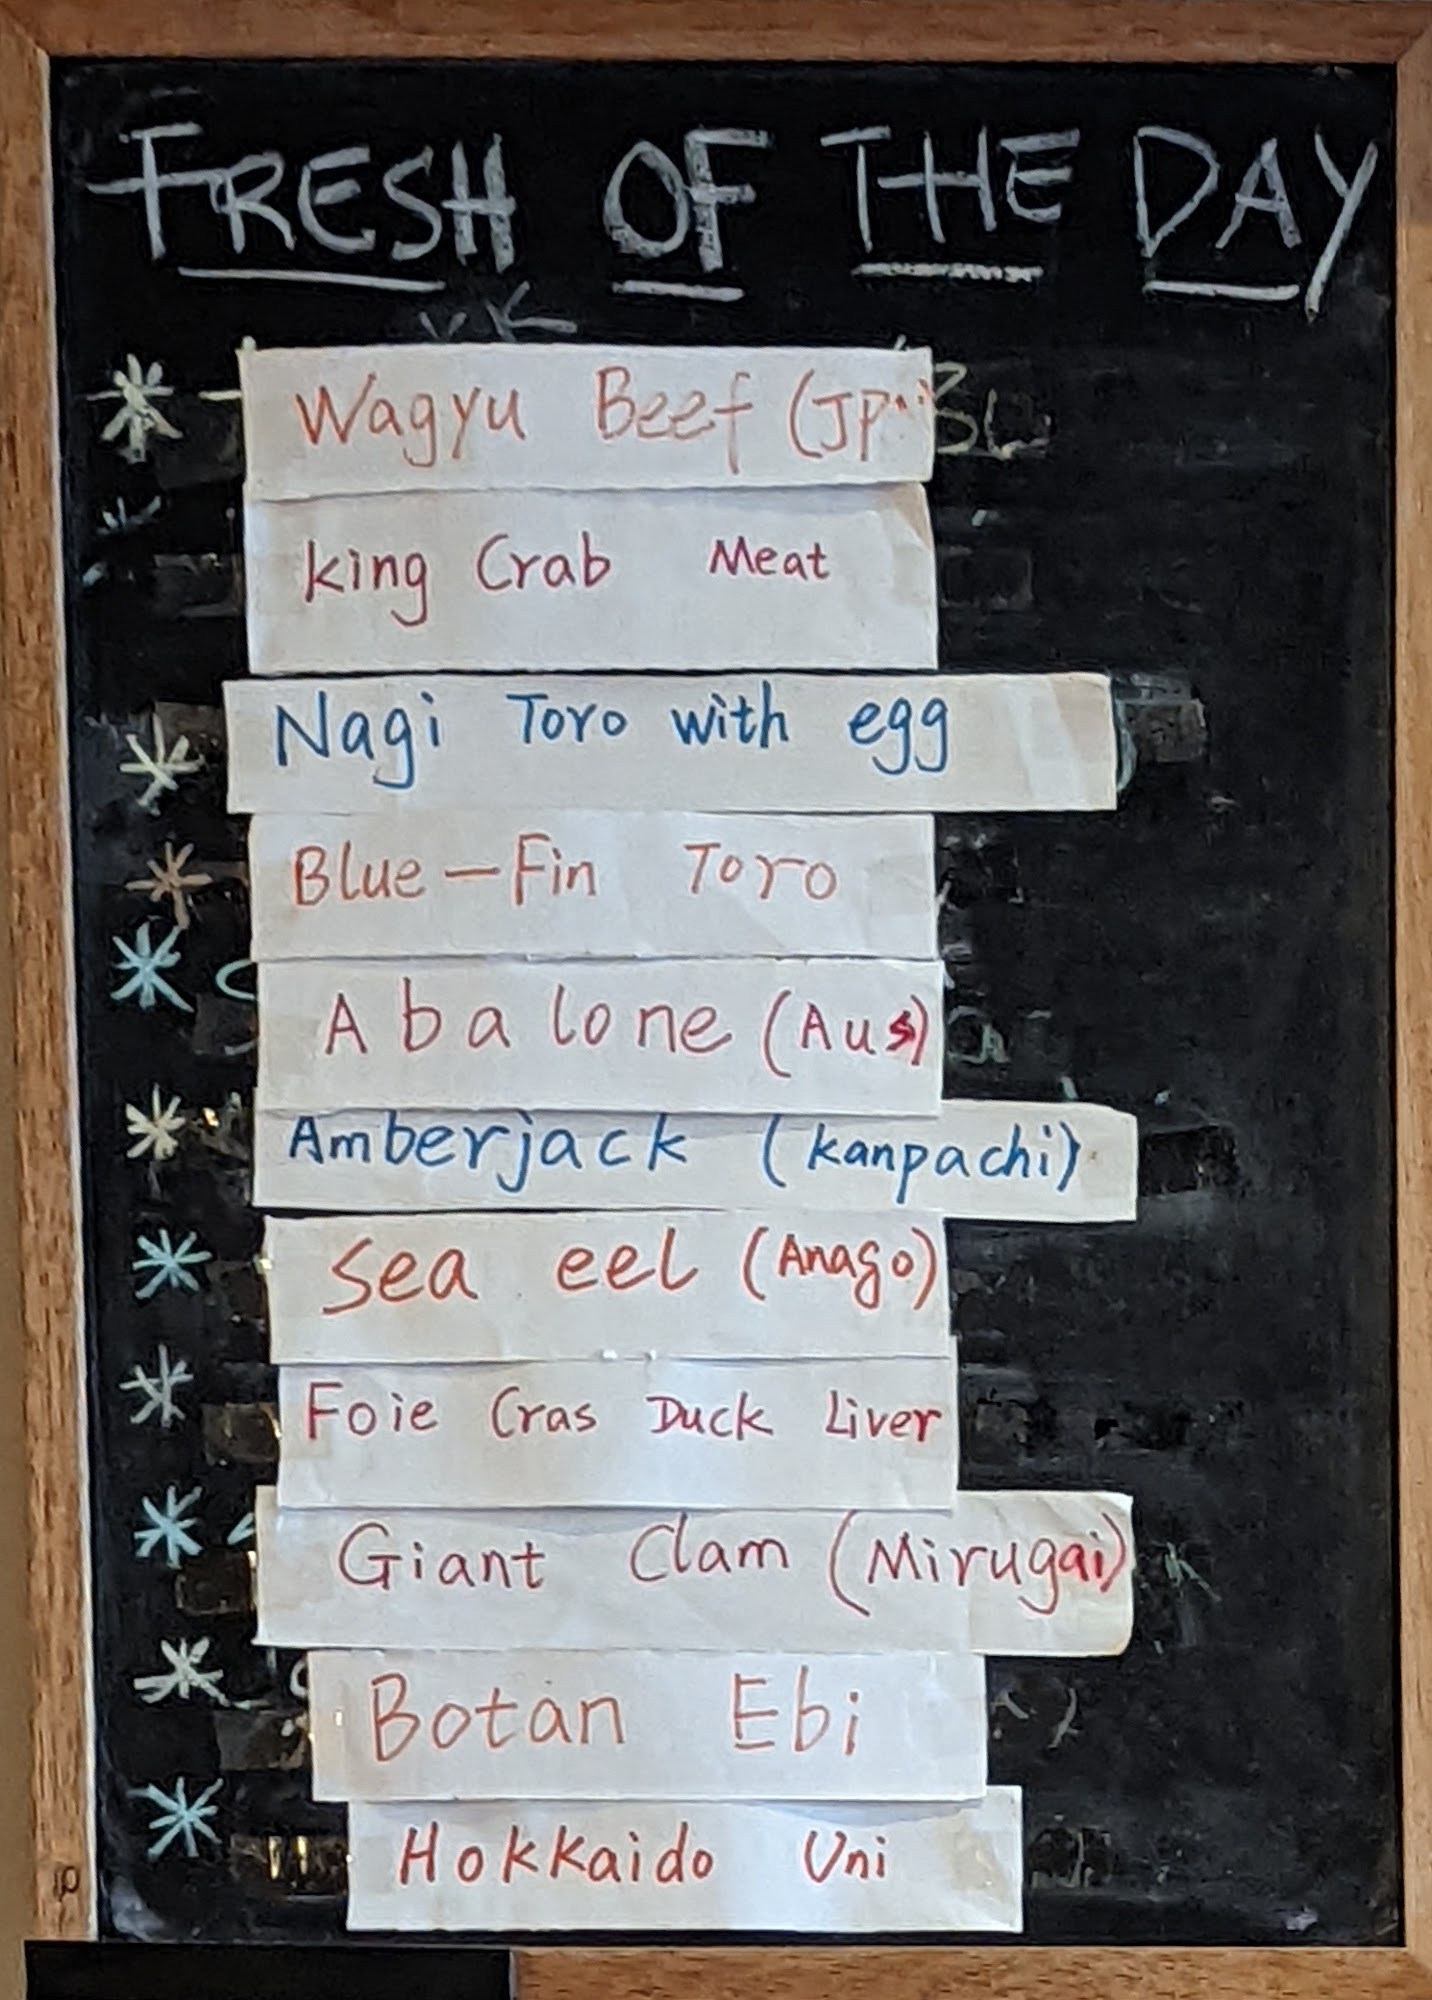 FRESH OF THE DAY
Wagyu Beef (JP
King Crab Meat
Nagi Toro with egg
Blue-Fin Toro
Abalone (Aus)
Amberjack (kanpachi)
Sea eel (Anago)
Foie Cras Duck Liver
Giant Clam (Mirugai)
Botan Ebi
Hokkaido Uni